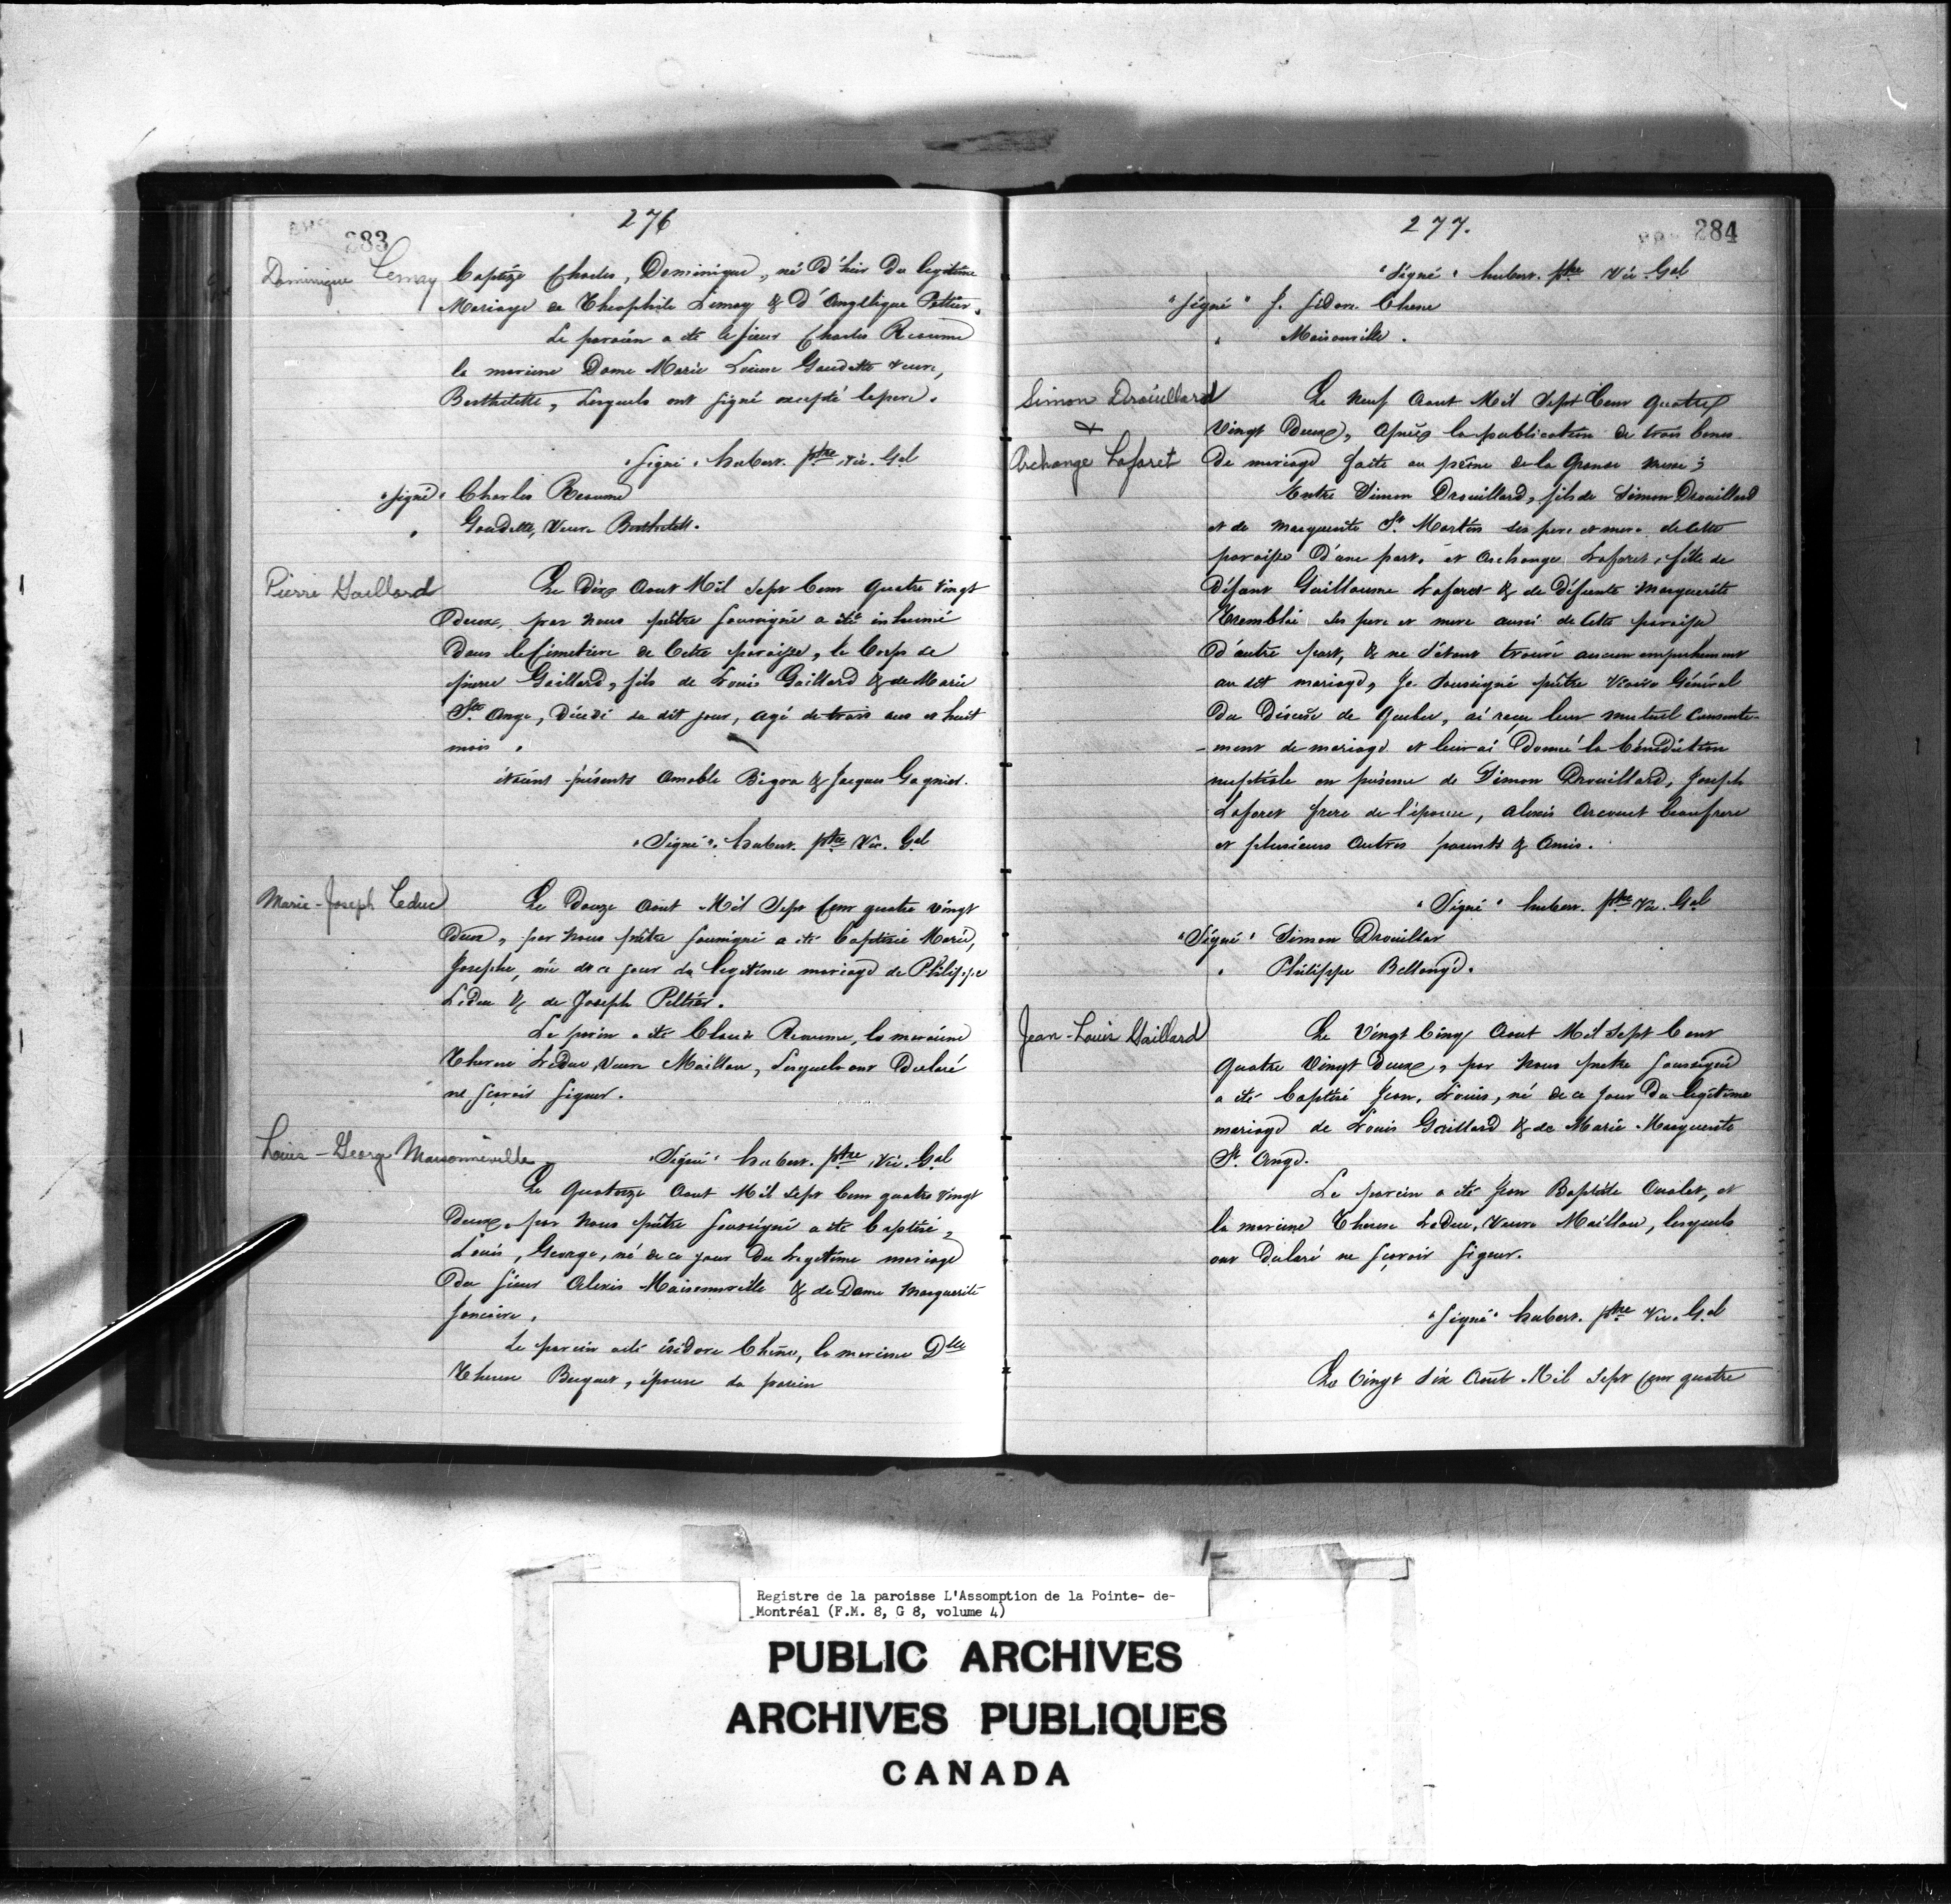 276
283
Dominique Lemay
baptize Charles, Dominique, né d'hier du legitime
Mariage de Theophile Lemay & d'Angelique Peltier.
Le parain a été le sieur Charles Reaume
la marenne Dame Marie Louise Gaudette veuve,
Berthelette, Lesquels ont signé excepté le pere.
"signé" hubert. ptre vic. Gal
"signé" Charles Reaume
" Gaudette, Veuve Berthelett.
Pierre Gaillard
Le Dix Aout Mil Sept Cent quatre vingt
Deux, par nous prêtre soussigné a été inhumé
Dans le Cimetiere de Cette paroisse, le Corps de
pierre Gaillard, fils de Louis Gaillard & de Marie
Ste Ange, Décédé du dit jour, agé de trois ans et huit
mois.
étaient présents Amable Bigra & Jacques Gagnier.
"Signé" hubert. ptre Vic. Gal
Marie-Joseph Leduc
Le Douze Aout Mil Sept Cent quatre vingt
Deux, par nous prêtre soussigné a été baptisée Marie,
Josephe, née de ce jour du legitime mariage de Philippe
Leduc & de Joseph Peltier.
Le parin a été Claude Reaume, la maraine
Therese Leduc, Veuve Maillou, Lesquels ont Declaré
ne sçavoir signer.
Louis-George Maisonneville
"Signé" hubert. ptre Vic. Gal
Le Quatorze Aout Mil Sept Cent quatre vingt
Deux, par nous prêtre soussigné a été baptisé,
Louis, George, né de ce jour Du Legitime mariage
du sieur Alexis Maisonville & de Dame Marguerite
Joncaire.
Le parain a été isidore Chêne, la mareine Dlle
Therese Becquet, épouse du parain
277.
284
"Signé" hubert. ptre Vic. Gal
"Signé" J. Isidore Chene
" Maisonville.
Simon Drouillard
&
Archange Laforet
Le Neuf Aout Mil Sept Cent Quatre
Vingt Deux, après la publication de trois bancs
De mariage faite au prône de la Grande messe;
Entre Simon Drouillard, fils de Simon Drouillard
et de Marguerite St. Martin ses pere et mere de cette
paroisse D'une part, et Archange Laforet, fille de
Défunt Guillaume Laforet & de Défunte Marguerite
Tremblai ses pere et mere aussi de Cette paroisse
D'autre part, & ne s'étant trouvé aucun empechement
au dit mariage, Je Soussigné prêtre Vicaire Général
Du Diocèse de Quebec, ai reçu leur mutuel consente-
-ment de mariage et leur ai Donné la bénédiction
nuptiale en présence de Simon Drouillard, Joseph
Laforet frere de l'épouse, Alexis Arcouet beaufrere
et plusieurs autres parents & Amis.
"Signé" hubert. ptre Vic. Gal
"Signé" Simon Drouillar
" Philippe Bellangé.
Jean-Louis Gaillard
Le Vingt Cinq Aout Mil Sept Cent
Quatre Vingt Deux, par nous pretre soussigné
a été baptisé Jean, Louis, né de ce jour Du legitime
mariage de Louis Gaillard & de Marie Marguerite
St. Ange.
Le parain a été Jean Baptiste Oualet, et
la mareine Therese Leduc, Veuve Maillou, lesquels
ont Declaré ne sçavoir signer.
"Signé" hubert. ptre Vic. Gal
Le Vingt Six Août Mil Sept Cent quatre
Registre de la paroisse L'Assomption de la Pointe- de-
Montréal (F.M. 8, G 8, volume 4)
PUBLIC ARCHIVES
ARCHIVES PUBLIQUES
CANADA